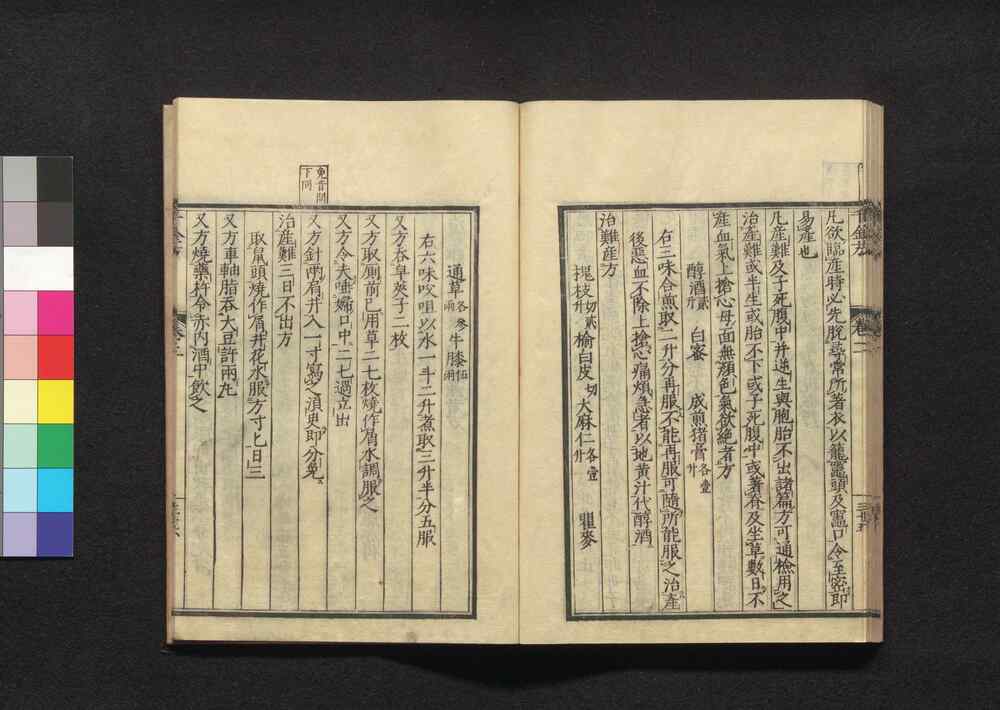 凡欲臨產時必先脫尋常所著衣以籠竈頭及竈口令至密即
易產也
凡產難及子死腹中并逆生與胞胎不出諸篇方可通檢用之
治產難或半生或胎不下或子死腹中或著脊及坐草數日不
產血氣上搶心母面無顏色氣欲絕者方
醇酒貳升 白蜜 成煎猪膏各壹升
右三味合煎取二升分再服不能再服可隨所能服之治產
後惡血不除上搶心痛煩急者以地黃汁代醇酒
治難產方
槐枝切貳升 榆白皮切 大麻仁各壹升 瞿麥
通草各參兩 牛膝伍兩
右六味㕮咀以水一斗二升煮取三升半分五服
又方吞皁莢子二枚
又方取廁前已用草二七枚燒作屑水調服之
又方令夫唾婦口中二七過立出
免音問
下同
又方針兩肩井入一寸寫之須臾即分免
治產難三日不出方
取鼠頭燒作屑井花水服方寸匕日三
又方車軸脂吞大豆許兩丸
又方燒藥杵令赤內酒中飲之